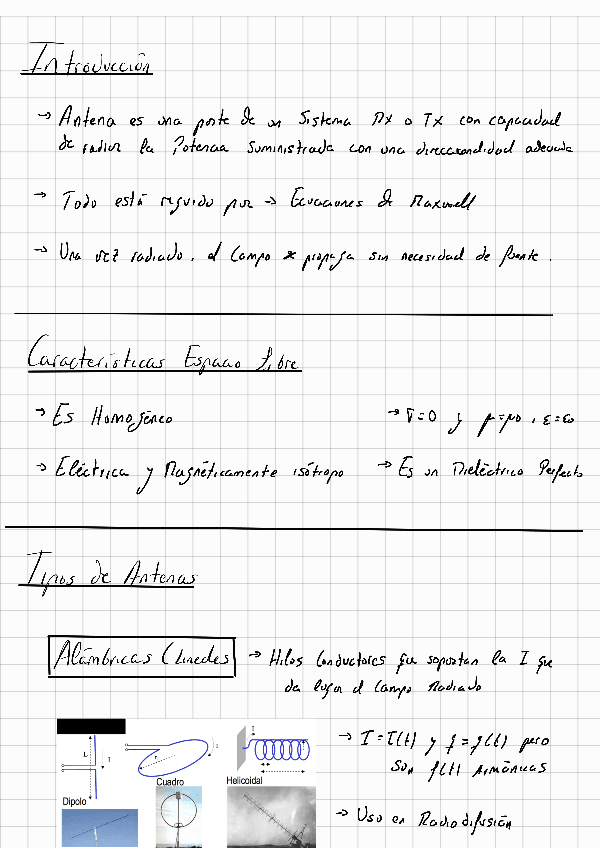 Introducción
→ Antena es una parte de un Sistema Rx o Tx con capacidad
de radiar la Potencia Suministrada con una direccionalidad adecuada
→ Todo está regido por → Ecuaciones de Maxwell
→ Una vez radiado, el Campo se propaga sin necesidad de fuente.
Características Espacio Libre
→ Es Homogéneo
→ σ=0 y μ=μ0, ε=ε0
→ Eléctrica y Magnéticamente isótropo
→ Es un Dieléctrico Perfecto
Tipos de Antenas
Alámbricas
→ Hilos Conductores que soportan la I que
da lugar al Campo Radiado
L
I
r
Dipolo
Cuadro
Helicoidal
→ I=I(t) y f=f(t) pero
Son f(t) armónicas
→ Uso en Radiodifusión